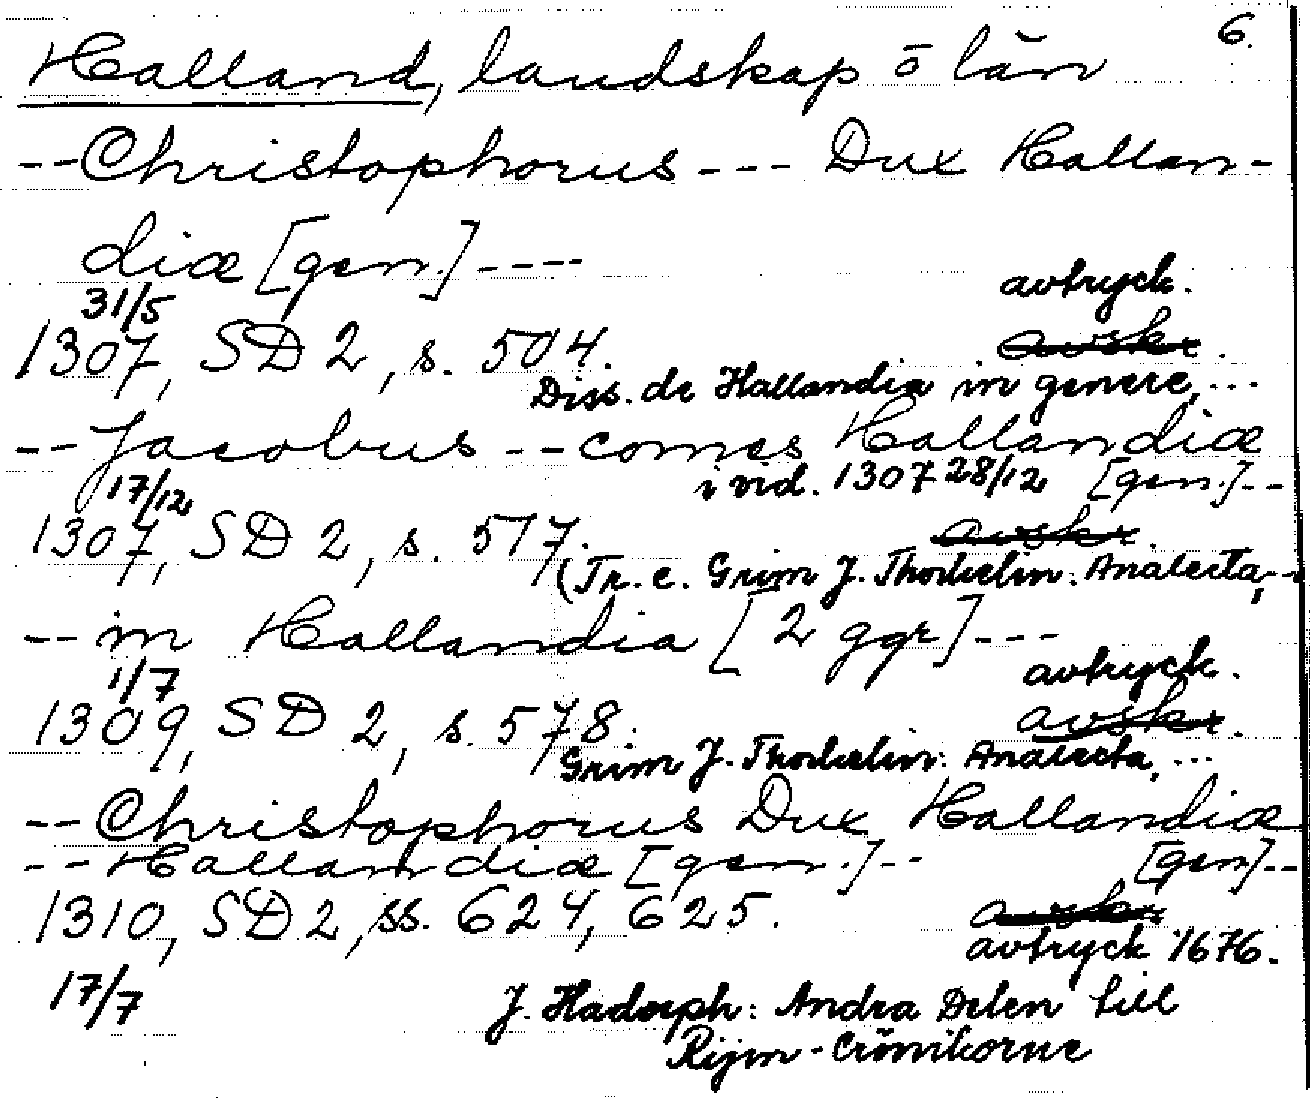 6.
Halland, landskap o län
--Christophorus--- Dux Hallan-
diæ [gen.]----
31/5 avtryck.
1307, SD 2, s. 504. avskr.
Diss. de Hallandia in genere, ...
--Jacobus--comes Hallandiæ
17/12 i vid. 1307 28/12 [gen.]--
1307, SD 2, s. 517. avskr.
(Tr. e. Grim J. Thorkelin: Analecta, --
--in Hallandia [2 ggr]---
1/7 avtryck.
1309, SD 2, s. 578. avskr.
Grim J. Thorkelin: Analecta, ...
--Christophorus Dux Hallandiæ
--Hallandiæ [gen.]-- [gen]--
1310, SD 2, ss. 624, 625. avskr.
avtryck 1676.
17/7 J. Hadorph: Andra Delen till
Rijm-Crönikorne